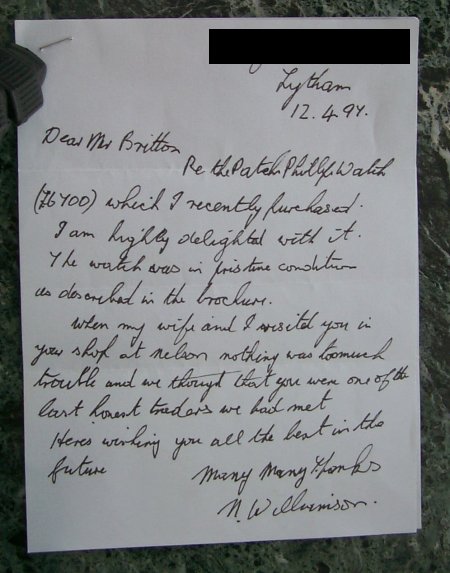 Lytham
12.4.97.
Dear Mr Britton
Re the Patek Phillip Watch
(£6400) which I recently purchased.
I am highly delighted with it.
The watch was in pristine condition
as described in the brochure.
When my wife and I visited you in
your shop at nelson nothing was too much
trouble and we though that you were one of the
last honest traders we had met
Here's wishing you all the best in the
future Many Many Thanks
N. Williamson.